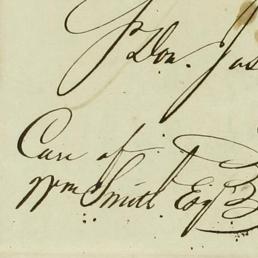 Don. Jas
Care of
Wm Smith Esq